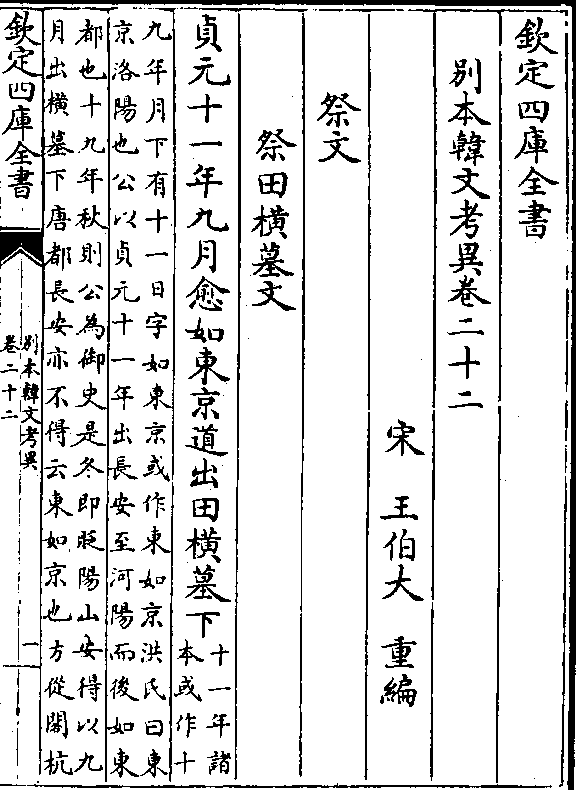 欽定四庫全書
別本韓文考異卷二十二
宋 王伯大 重編
祭文
祭田橫墓文
貞元十一年九月愈如東京道出田橫墓下
十一年諸
本或作十
九年月下有十一日字如東京或作東如京洪氏曰東
京洛陽也公以貞元十一年出長安至河陽而後如東
都也十九年秋則公為御史是冬即貶陽山安得以九
月出橫墓下唐都長安亦不得云東如京也方從閣杭
欽定四庫全書
別本韓文考異
卷二十二
一